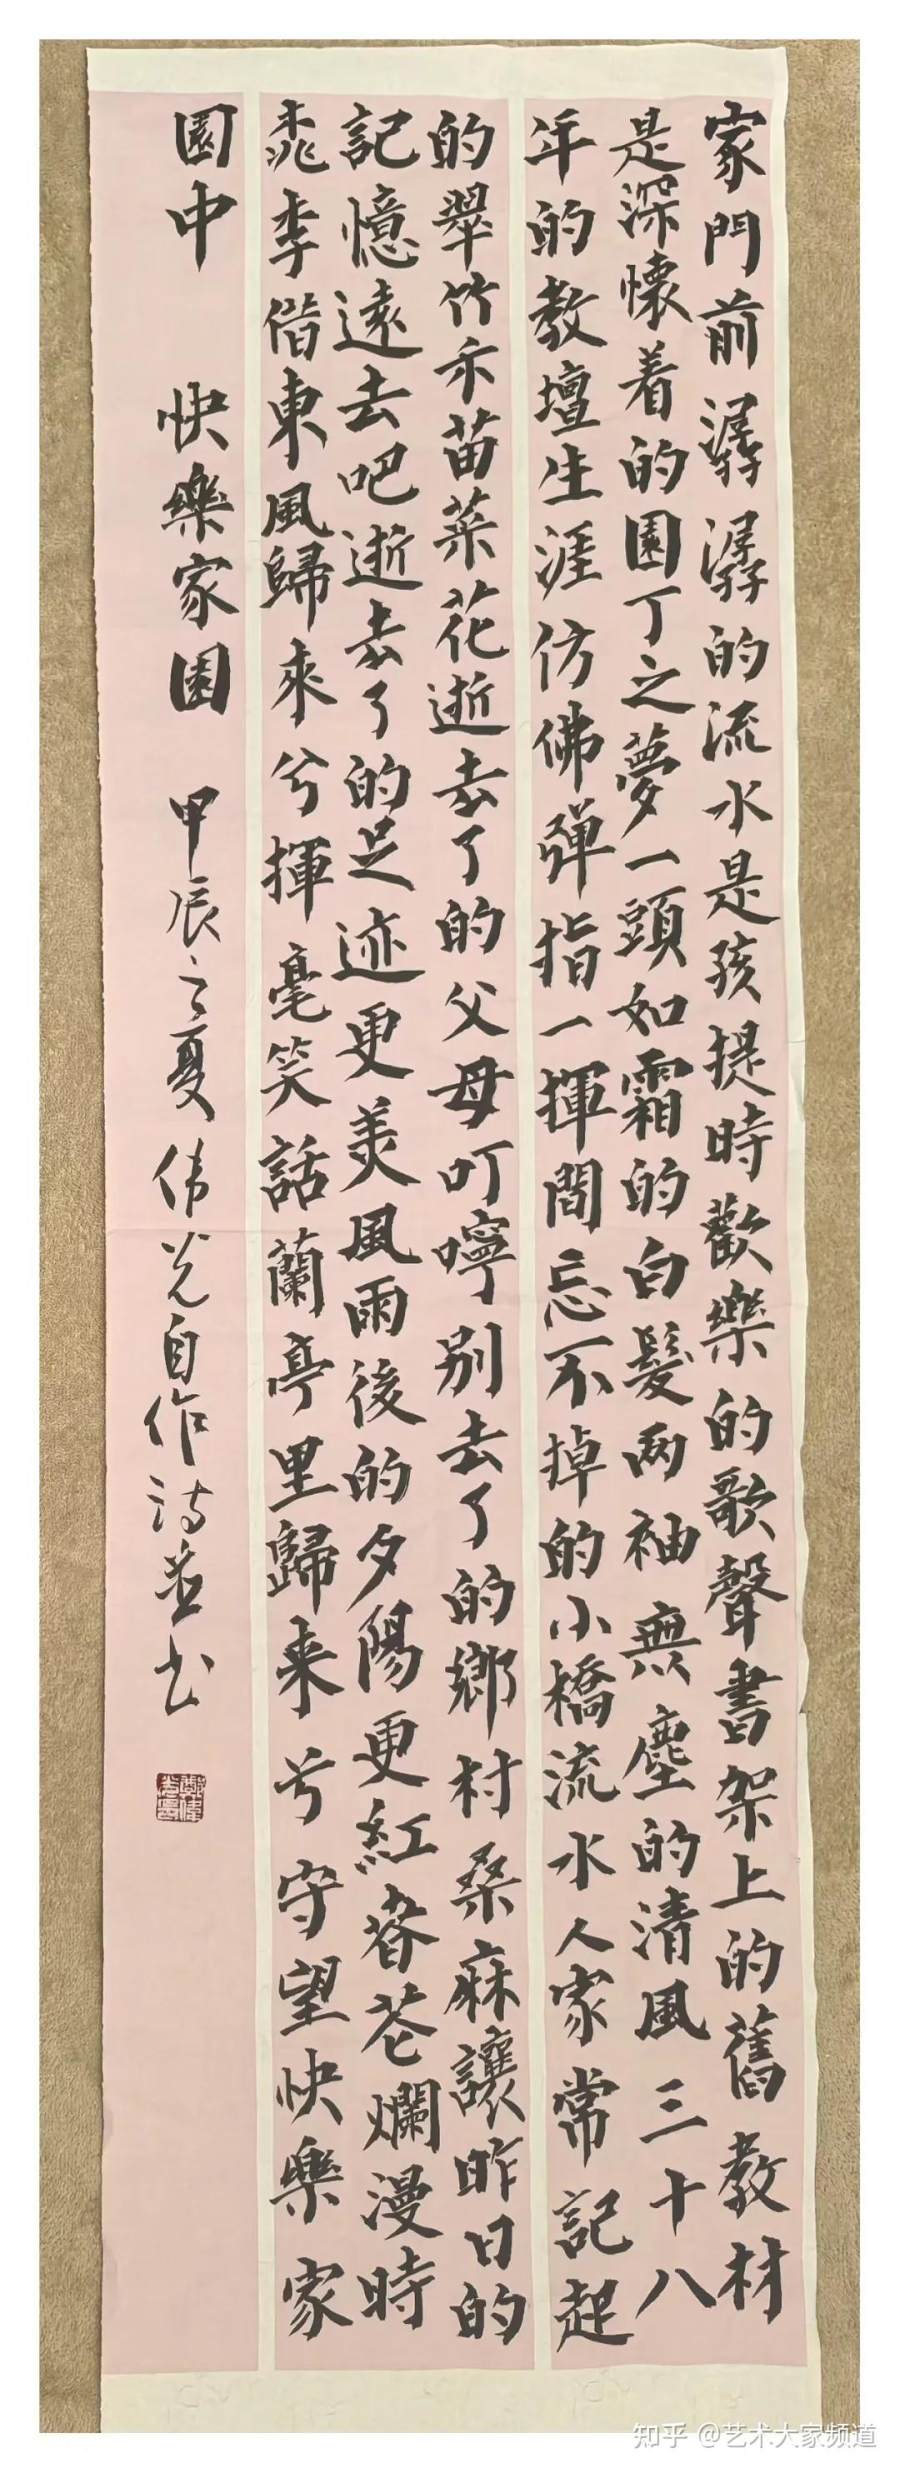 家門前潺潺的流水是孩提時歡樂的歌聲書架上的舊教材
是深懷着的園丁之夢一頭如霜的白髮两袖無塵的清風三十八
年的教壇生涯仿佛彈指一揮間忘不掉的小橋流水人家常記起
的翠竹禾苗菜花逝去了的父母叮嚀別去了的鄉村桑麻讓昨日的
記憶遠去吧逝去了的足迹更美風雨後的夕陽更紅春花爛漫時
桃李偕東風歸來兮揮毫笑話蘭亭里歸来兮守望快樂家
園中 快樂家園 甲辰之夏伟光自作诗並书
知乎 @艺术大家频道